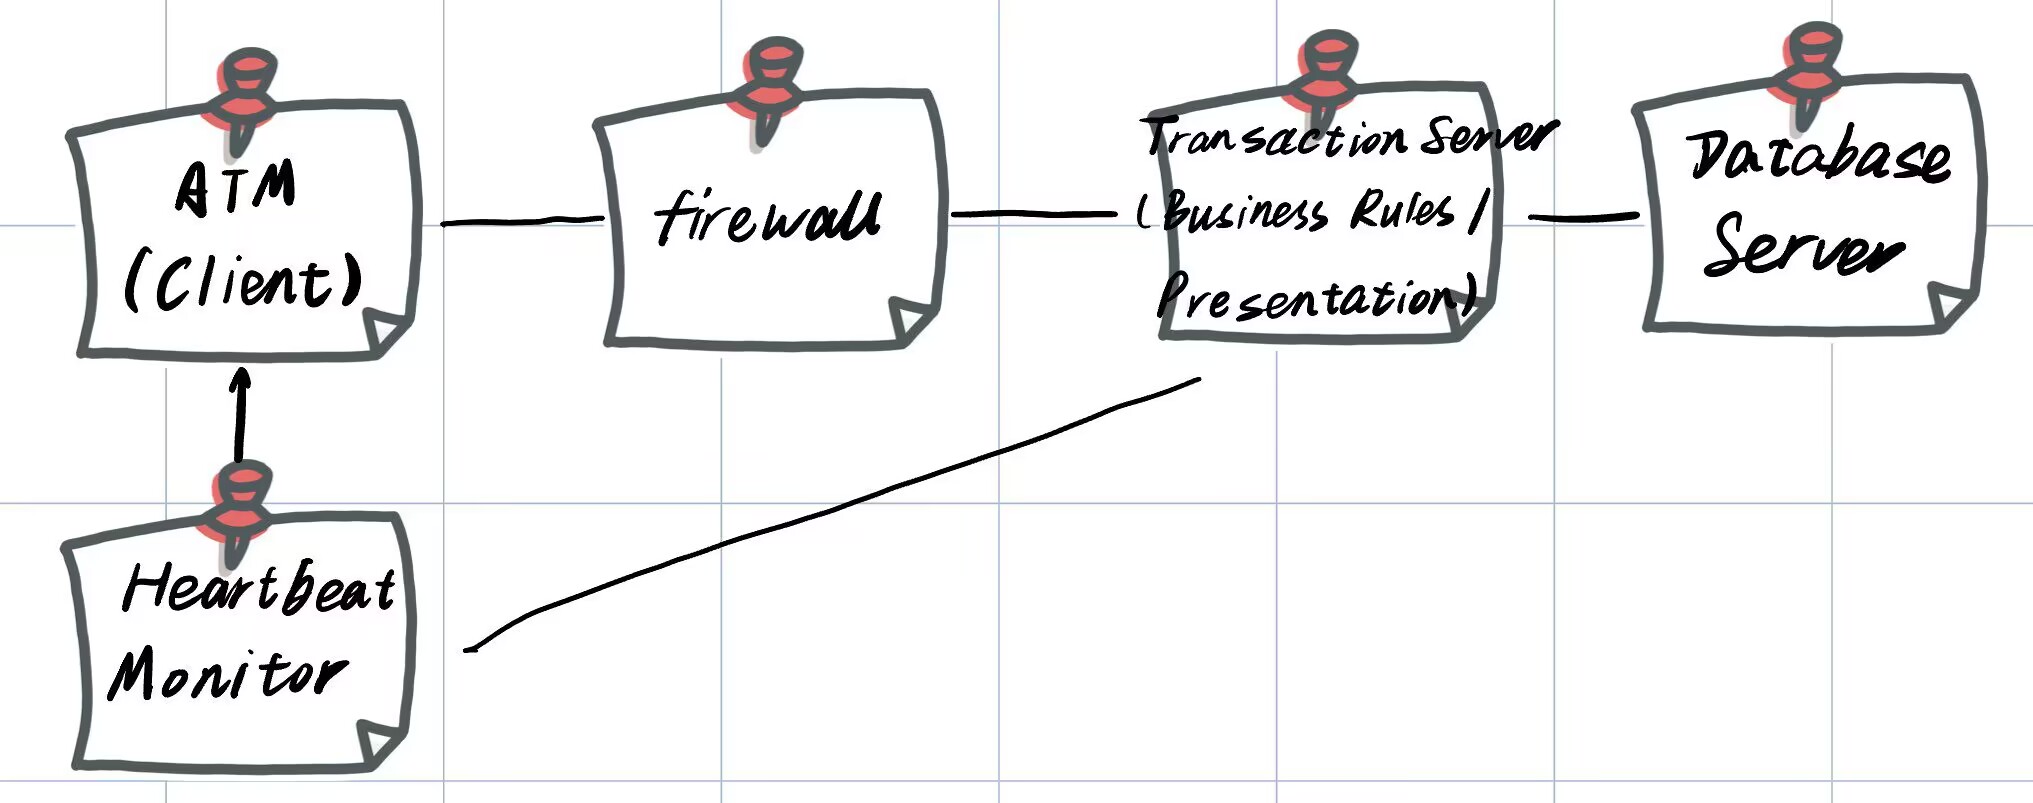 ATM
(Client)
firewall
Transaction Server
(Business Rules /
Presentation)
Database
Server
Heartbeat
Monitor